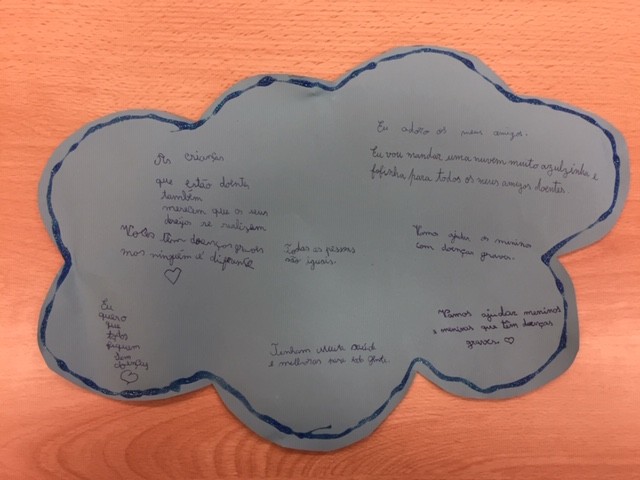 Eu adoro os meus amigos.
Eu vou mandar uma nuvem muito azulzinha e
fofinha para todos os meus amigos doentes.
As crianças
que estão doentes
também
merecem que os seus
desejos se realizem
Vocês têm doenças graves
mas ninguém é diferente
Todas as pessoas
são iguais.
Vamos ajudar os meninos
com doenças graves.
Eu
quero
que
todos
fiquem
sem
doenças
Tenham muita saúde
e melhoras para toda gente.
Vamos ajudar meninos
e meninas que têm doenças
graves.